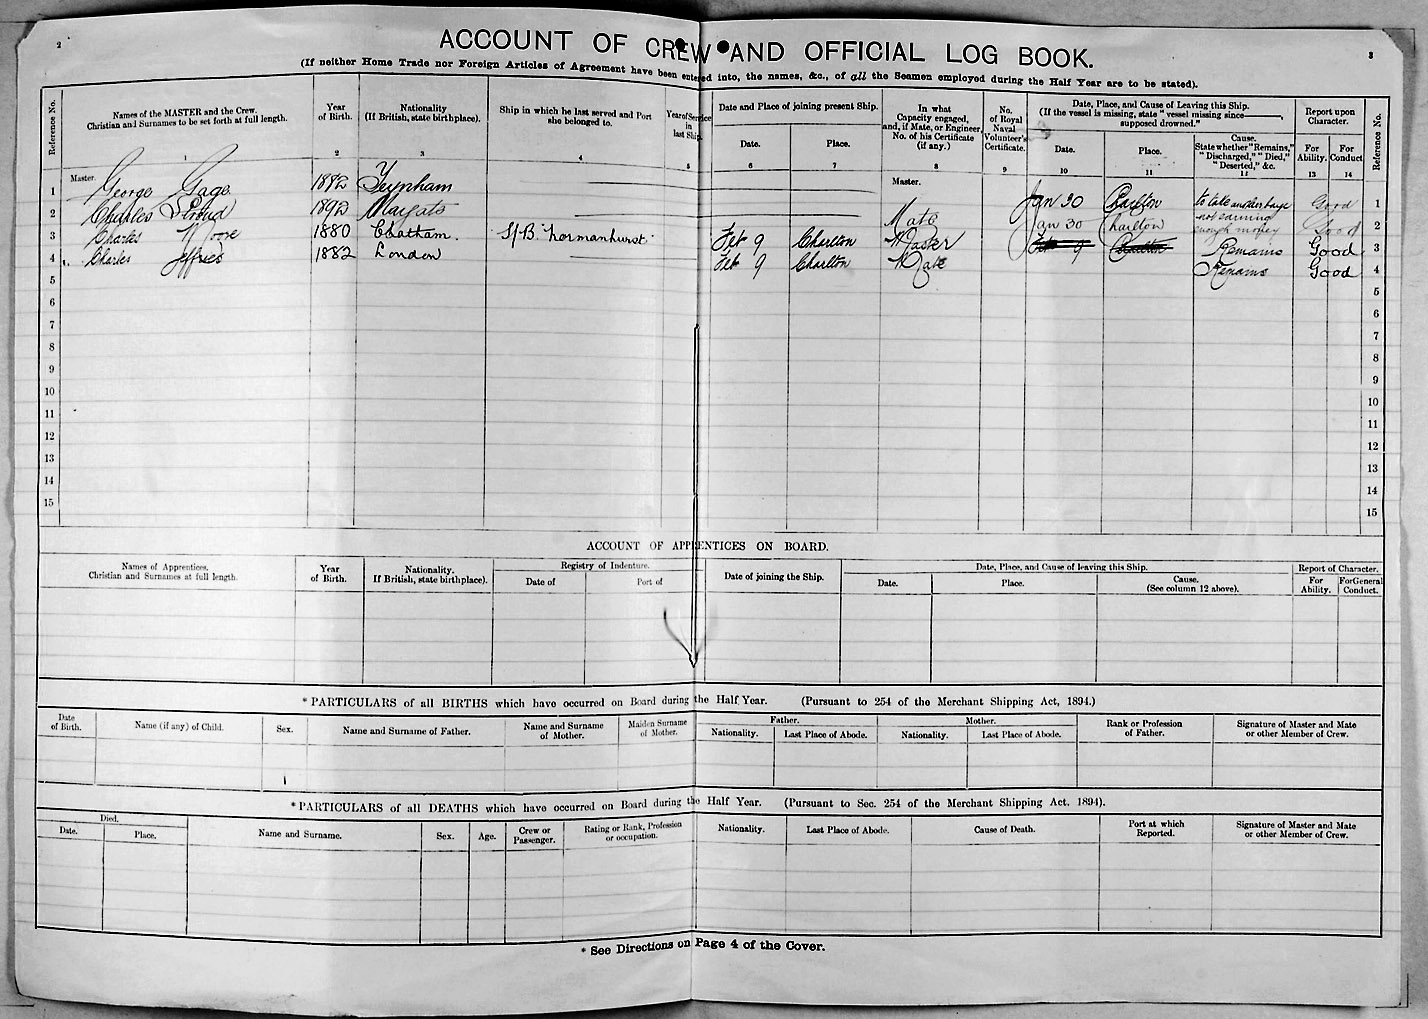 2
ACCOUNT OF CREW AND OFFICIAL LOG BOOK.
3
(If neither Home Trade nor Foreign Articles of Agreement have been entered into, the names, &c., of all the Seamen employed during the Half Year are to be stated).
Reference No.
Names of the MASTER and the Crew.
Christian and Surnames to be set forth at full length.
Year
of Birth.
Nationality
(If British, state birthplace).
Ship in which he last served and Port
she belonged to.
Year of Service
in
last Ship.
Date and Place of joining present Ship.
Date.
Place.
In what
Capacity engaged,
and, if Mate, or Engineer,
No. of his Certificate
(if any.)
No.
of Royal
Naval
Volunteer's
Certificate.
Date, Place, and Cause of Leaving this Ship.
(If the vessel is missing, state "vessel missing since
supposed drowned."
Date.
Place.
Cause.
State whether "Remains,"
"Discharged," "Died,"
"Deserted," &c.
Report upon
Character.
For
Ability.
For
Conduct
Reference No.
1 2 3 4 5 6 7 8 9 10 11 12 13 14
1 Master. George Gage 1882 Teynham Master. Jan 30 Charlton to take another barge Good 1
2 Charles Stroud 1892 Margate Mate Jan 30 Charlton not earning enough money Good 2
3 Charles Moore 1880 Chatham. S/B. "Normanhurst" Feb 9 Charlton Master Feb 9 Charlton Remains Good 3
4 Charles Jeffries 1882 London Feb 9 Charlton Mate Remains Good 4
5 5
6 6
7 7
8 8
9 9
10 10
11 11
12 12
13 13
14 14
15 15
ACCOUNT OF APPRENTICES ON BOARD.
Names of Apprentices.
Christian and Surnames at full length.
Year
of Birth.
Nationality.
If British, state birthplace).
Registry of Indenture.
Date of
Port of
Date of joining the Ship.
Date, Place, and Cause of leaving this Ship.
Date.
Place.
Cause.
(See column 12 above).
Report of Character.
For
Ability.
For General
Conduct.
* PARTICULARS of all BIRTHS which have occurred on Board during the Half Year. (Pursuant to 254 of the Merchant Shipping Act, 1894.)
Date
of Birth.
Name (if any) of Child.
Sex.
Name and Surname of Father.
Name and Surname
of Mother.
Maiden Surname
of Mother.
Father.
Nationality.
Last Place of Abode.
Mother.
Nationality.
Last Place of Abode.
Rank or Profession
of Father.
Signature of Master and Mate
or other Member of Crew.
* PARTICULARS of all DEATHS which have occurred on Board during the Half Year. (Pursuant to Sec. 254 of the Merchant Shipping Act. 1894).
Died.
Date.
Place.
Name and Surname.
Sex.
Age.
Crew or
Passenger.
Rating or Rank, Profession
or occupation.
Nationality.
Last Place of Abode.
Cause of Death.
Port at which
Reported.
Signature of Master and Mate
or other Member of Crew.
* See Directions on Page 4 of the Cover.